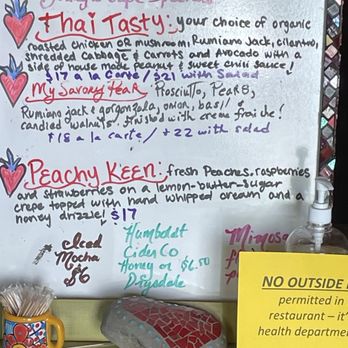 Thai Tasty: your choice of organic
roasted chicken OR mushroom, Rumiano Jack, cilantro,
shredded Cabbage & Carrots and Avocado with a
side of house made peanut & sweet chili sauce!
$17 a la Carte / $21 with Salad
My Savory Pear Prosciutto, Pears,
Rumiano jack & gorgonzola, onion, basil &
candied walnuts. finished with creme fraiche!
$18 a la carte / $22 with salad
Peachy Keen: fresh Peaches, raspberries
and strawberries on a lemon-butter-sugar
crepe topped with hand whipped cream and a
honey drizzle! $17
Iced
Mocha
$6
Humboldt
Cider Co
Honey or $6.50
Drysdale
Mimosa
NO OUTSIDE
permitted in
restaurant – it's
health departme